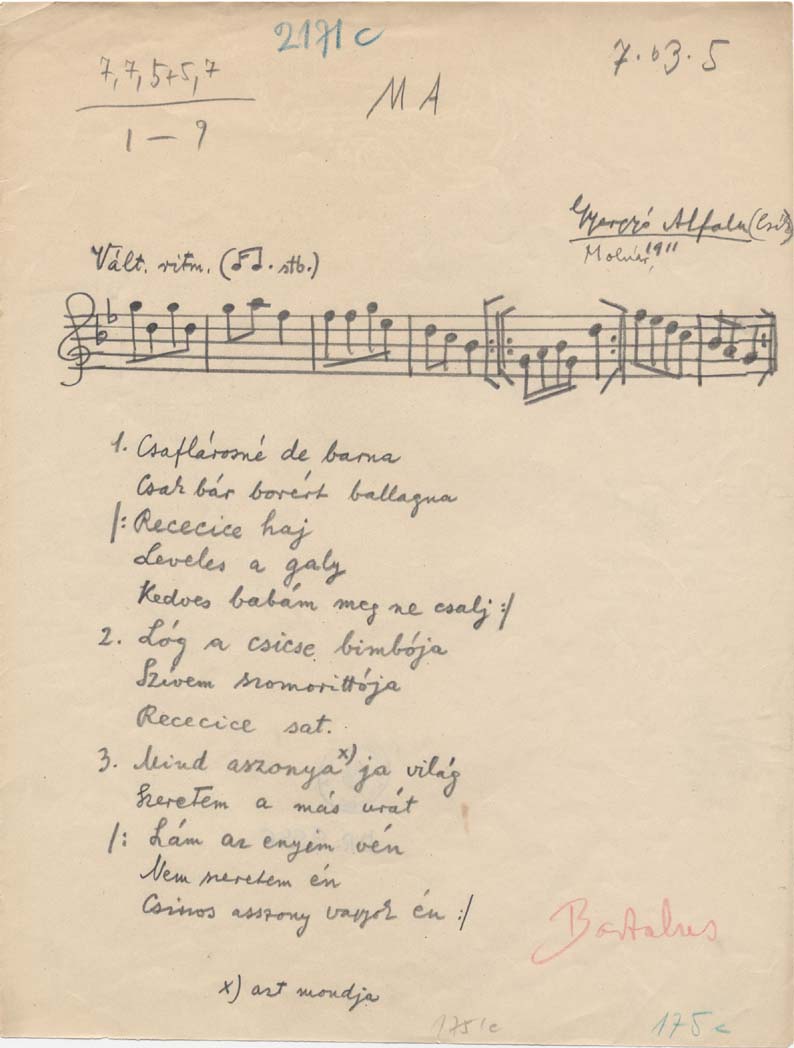 2171c
7, 7, 5+5, 7
1 — 9
MA
7. b3. 5
Gyergyó Alfalu (Csík)
Molnár, 1911
Vált. ritm. ( . stb.)
1. Csaflárosné de barna
Csak bár borért ballagna
/: Rececice haj
Leveles a galy
Kedves babám meg ne csalj :/
2. Lóg a csicse bimbója
Szívem szomorittója
Rececice sat.
3. Mind aszonya x) ja világ
Szeretem a más urát
/: Lám az enyim vén
Nem szeretem én
Csinos asszony vagyok én :/
x) azt mondja
Bartalus
175/c
175c